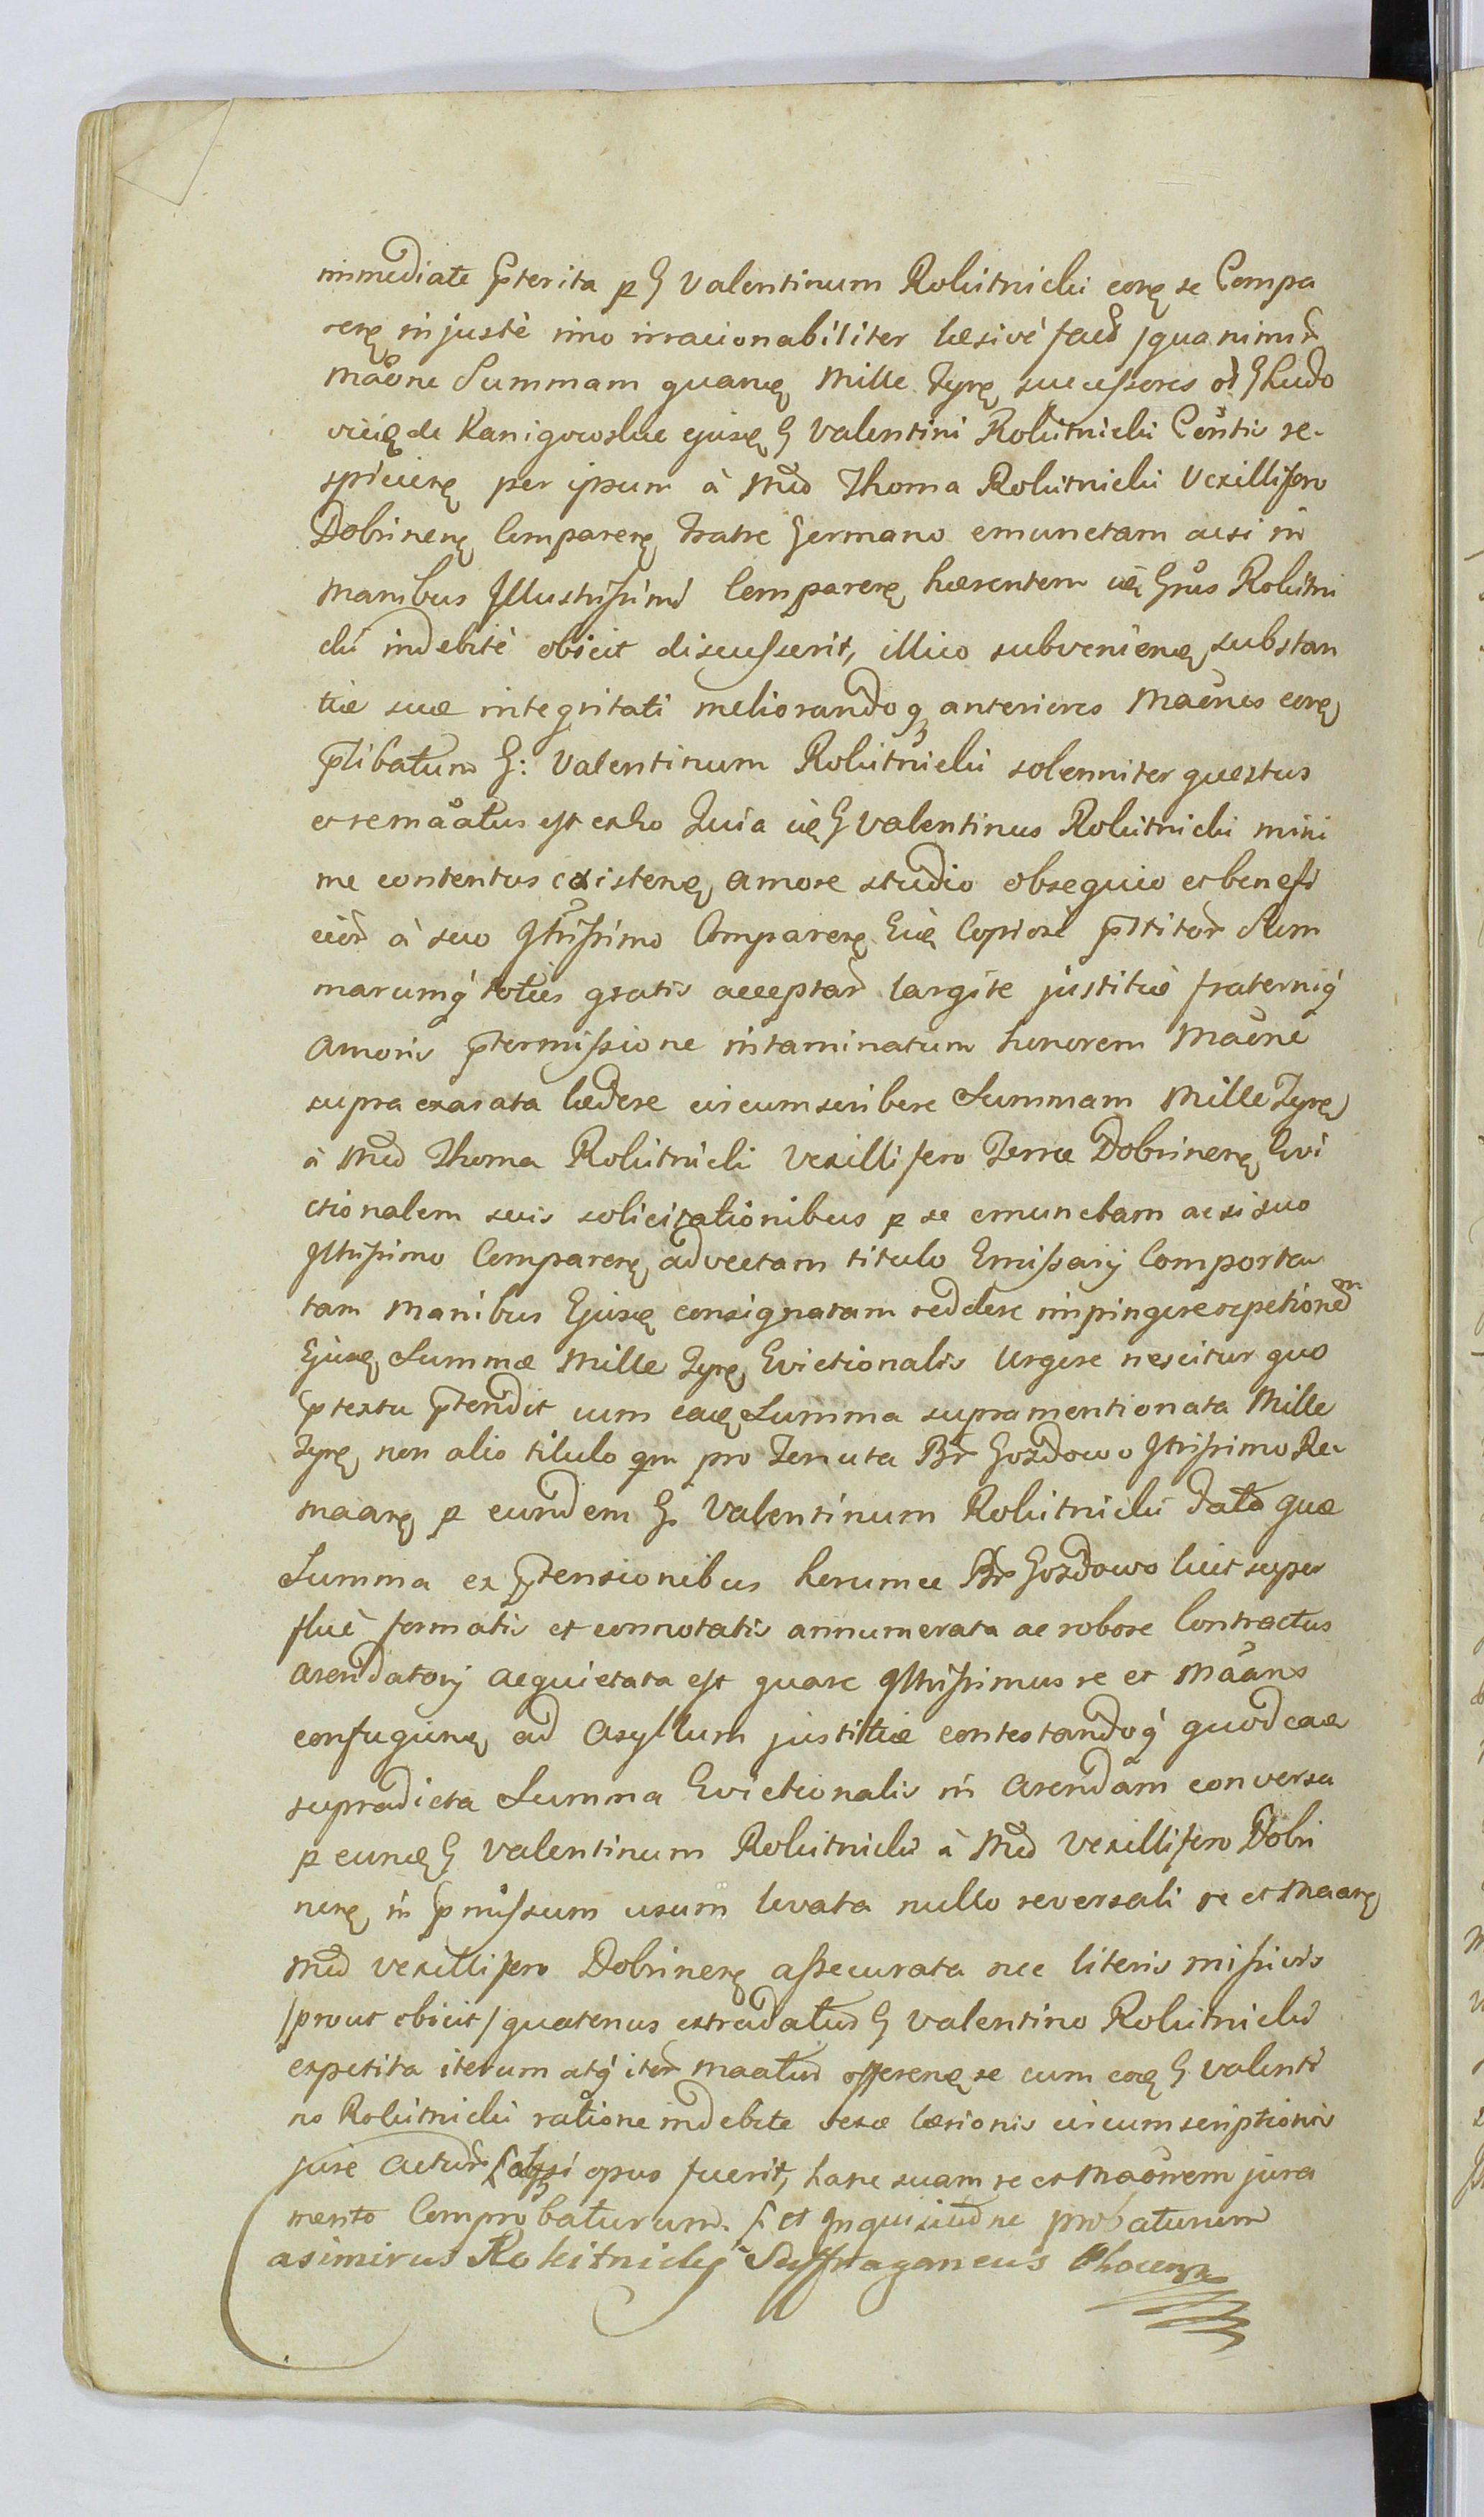 immediate p̄terita p G Valentinum Rokitnicki corę se Compa
renę injustè imo irracionabiliter læsivè
maõne Summam quamę Mille Tynę successores G Ludo
vicię de Kanigowskie ejusę G Valentini Rokitnicki re-
spicienę per ipsum à Mco Thoma Rokitnicki Vexillifero
Dobrinenę Comparenę Fratre Germano emunctam acsi in
manibus Illustrissimi Comparenę hærentem Grõs Rokitni
cki indebitè obicit discusserit, illico subvenienę substan
tiæ suæ integritati meliorandoq anteriores Maõnes corę
p̄libatum G: Valentinum Rokitnicki solenniter questus
et remaãtus est Quia G Valentinus Rokitnicki mini
me contentus existenę amore studio obsequio et benefi
cior à suo Ittrissimo Comparenę Copiosè p̄stitor Sum
marumq́ toties gratis acceptar largite justitiæ fraterniq́
Amoris p̄termissione intaminatum honorem Maõne
supra exarata lædere circumscribere Summam Mille Tynę
à Mco Thoma Rokitnicki Vexillifero Terræ Dobrinenę Evi
ctionalem suis solicitationibus p se emunctam acsi suo
Ittrissimo Comparenę advectam titulo Emissarij Comporta
tam manibus Ejusę consignatam reddere impingere repetionem
Ejusę Summæ Mille Tynę Evictionalis Urgere nescitur quo
p̄textu p̄tendit cum eaę Summa supramentionata Mille
Tynę non alio titulo qm pro Tenuta Br Gozdowo Ittrissimo Re
maanę p eundem G Valentinum Rokitnicki data quæ
Summa ex p̄tensionibus horumce Br Gozdowo licet super
fluè formatis et connotatis annumerata ac robore Contractus
Arendatorij acquietata est quare Ittrissimus re et Maãns
confugienę ad Asyllum justitiæ contestandoq́ quod eaę
supradicta Summa Evictionalis in Arendam conversa
p eunę G Valentinum Rokitnicki à Mco Vexillifero Dobri
nenę in p̄missum usum levata nullo reversali re et Maanę
Mco Vexillifero Dobrinenę assecurata nec literis missivis
/prout obicit/ quatenus extradatur G Valentino Rokitnicki
expetita iterum atq́ iter maatur offerenę se cum eoę G Valenti
no Rokitnicki ratione indebite veræ læsionis circumscriptionis
jure acturum si opus fuerit, hanc suam re et Maõnem jura
mento Comprobaturum. et Inquisitione probaturum
Casimirus Rokitnicky Suffraganeus Plocensis